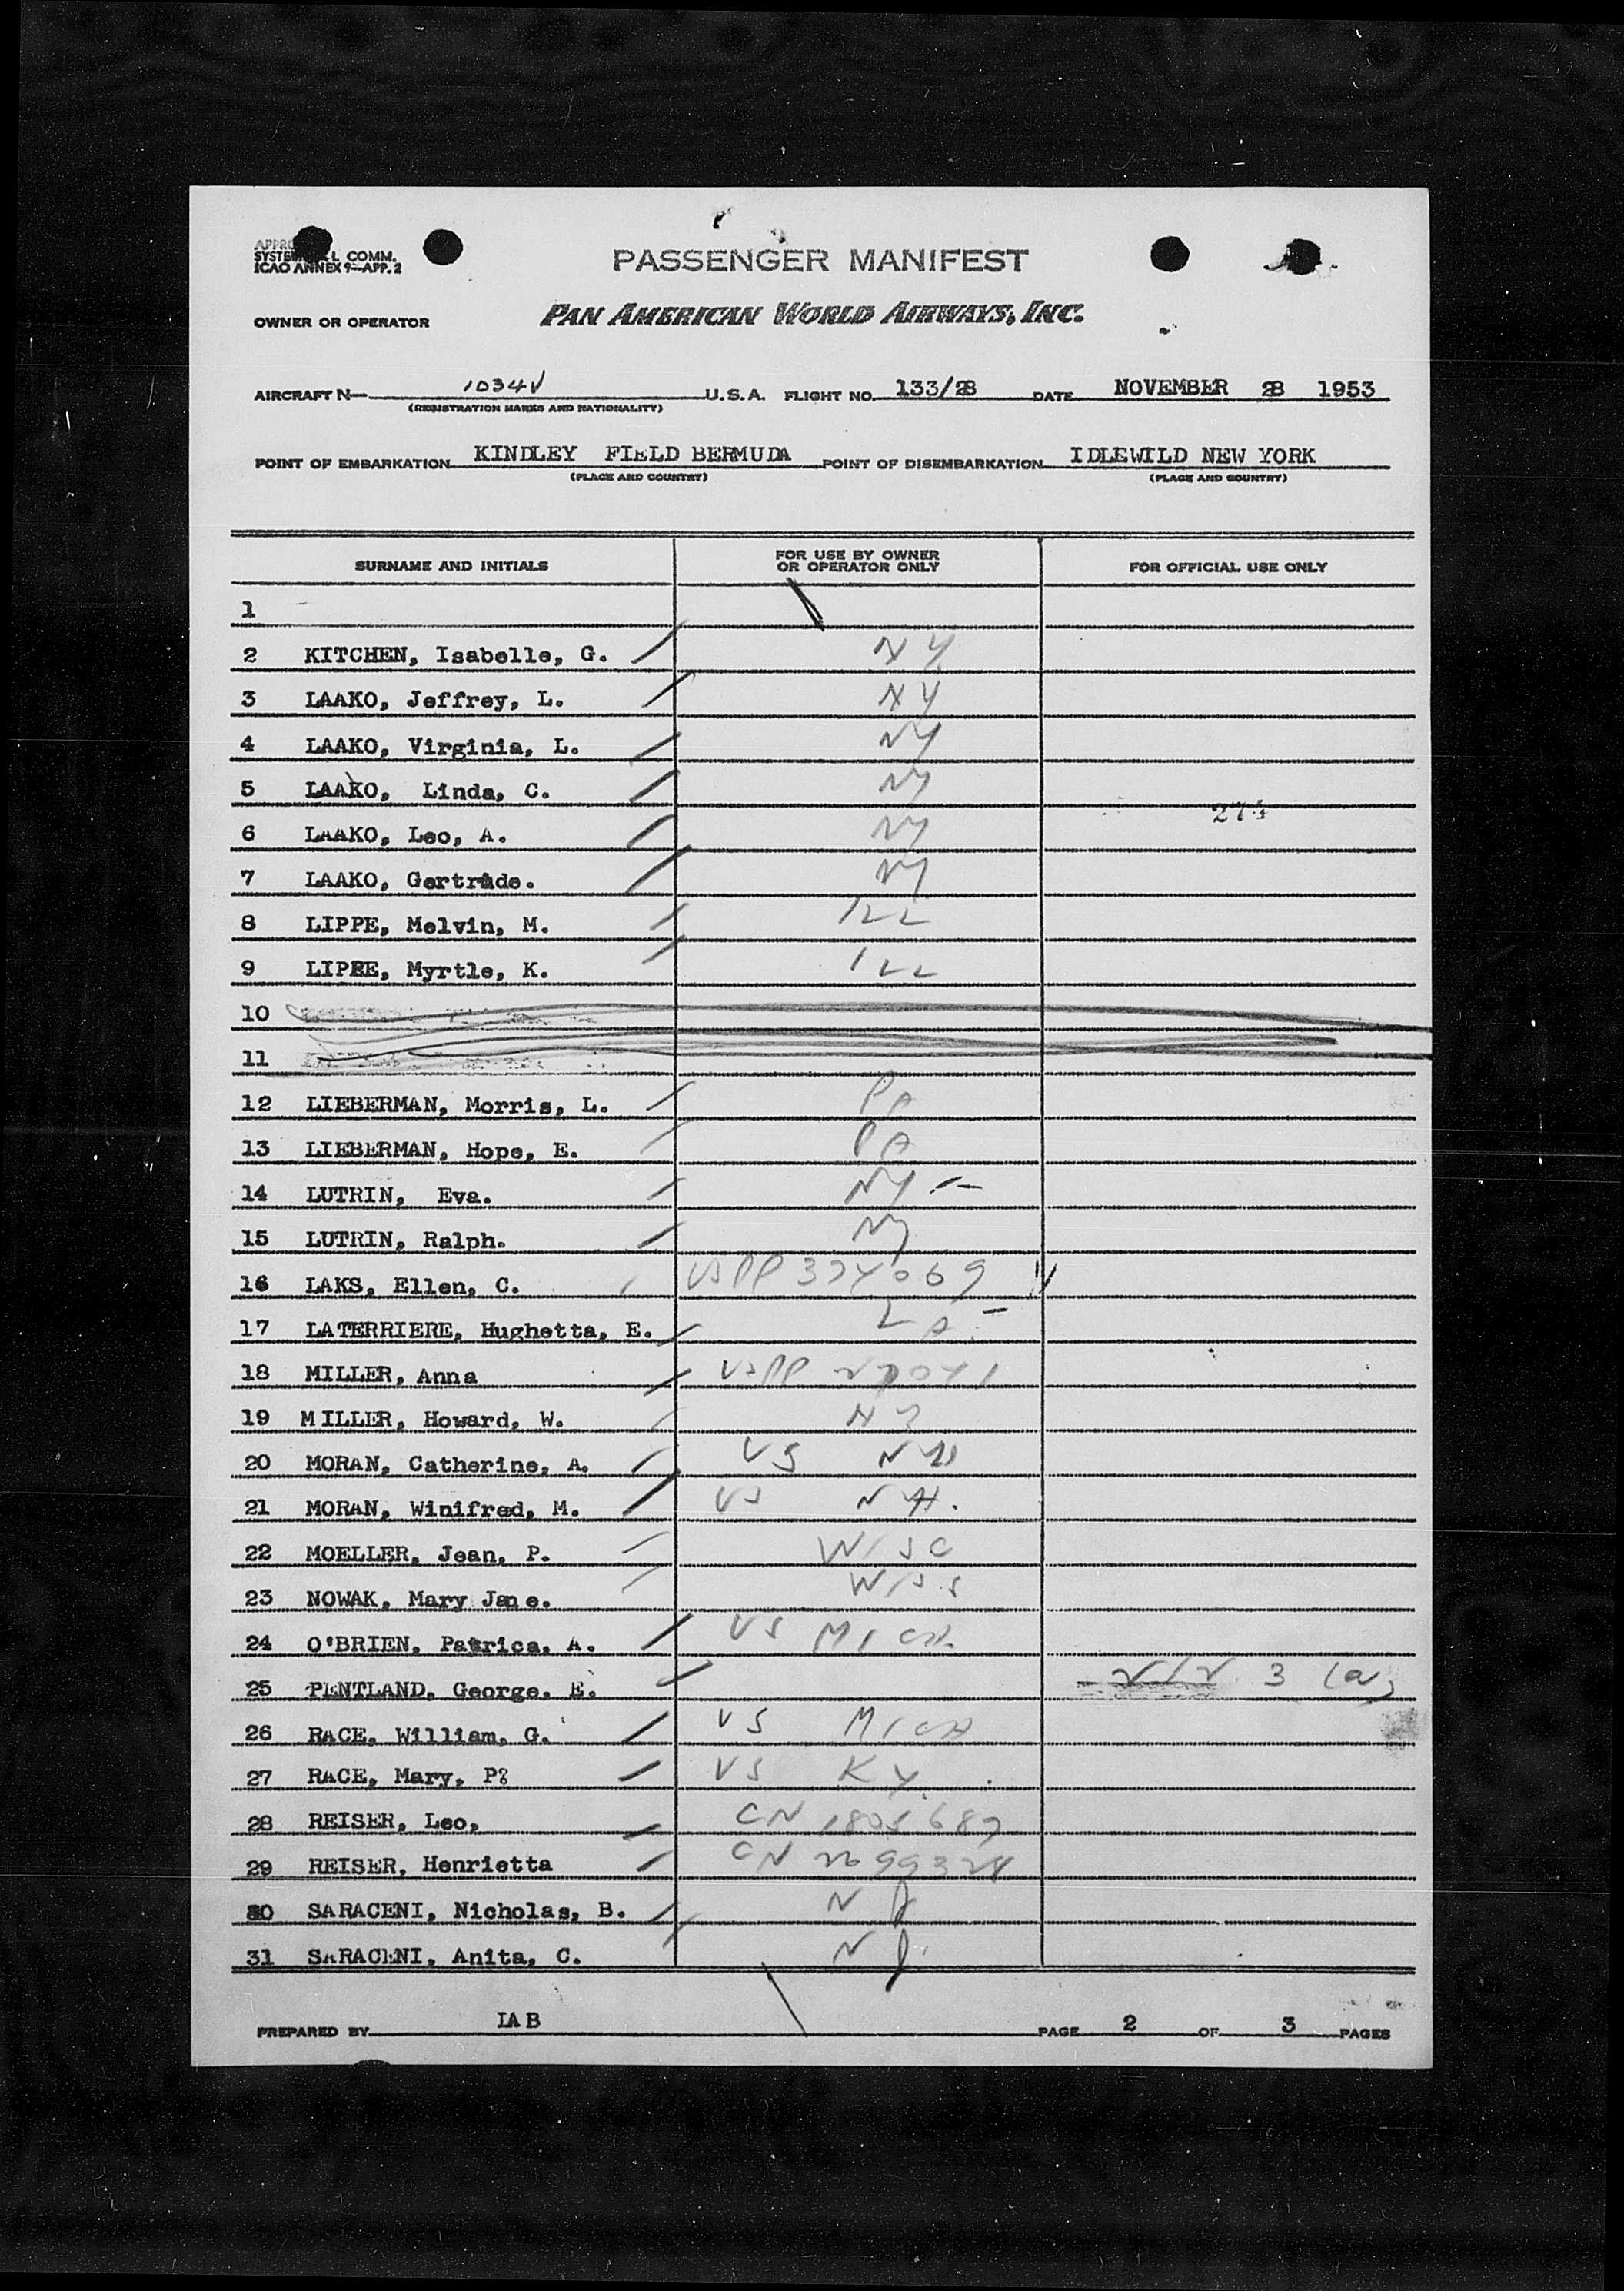 SYSTEM
COMM.
ICAO ANNEX 9—APP. 2
PASSENGER MANIFEST
OWNER OR OPERATOR PAN AMERICAN WORLD AIRWAYS, INC.
AIRCRAFT N— 1034V U.S.A. FLIGHT NO. 133/28 DATE NOVEMBER 28 1953
(REGISTRATION MARKS AND NATIONALITY)
POINT OF EMBARKATION KINDLEY FIELD BERMUDA POINT OF DISEMBARKATION IDLEWILD NEW YORK
(PLACE AND COUNTRY) (PLACE AND COUNTRY)
SURNAME AND INITIALS FOR USE BY OWNER OR OPERATOR ONLY FOR OFFICIAL USE ONLY
1
2 KITCHEN, Isabelle, G. NY
3 LAAKO, Jeffrey, L. NY
4 LAAKO, Virginia, L. NY
5 LAAKO, Linda, C. NY
6 LAAKO, Leo, A. NY
7 LAAKO, Gertrude. NY
8 LIPPE, Melvin, M. ILL
9 LIPPE, Myrtle, K. ILL
10
11
12 LIEBERMAN, Morris, L. PA
13 LIEBERMAN, Hope, E. PA
14 LUTRIN, Eva. NY
15 LUTRIN, Ralph. NY
16 LAKS, Ellen, C. USPP 374069
17 LATERRIERE, Hughetta, E. LA
18 MILLER, Anna USPP
19 MILLER, Howard, W.
20 MORAN, Catherine, A. US
21 MORAN, Winifred, M. US NH.
22 MOELLER, Jean, P. WISC
23 NOWAK, Mary Jane.
24 O'BRIEN, Patrica, A. US MICH.
25 PENTLAND, George, E. 3 (a)
26 RACE, William, G. US MICH
27 RACE, Mary, P? US KY.
28 REISER, Leo, CN
29 REISER, Henrietta CN
30 SARACENI, Nicholas, B. NJ
31 SARACENI, Anita, C. NJ
PREPARED BY IAB PAGE 2 OF 3 PAGES